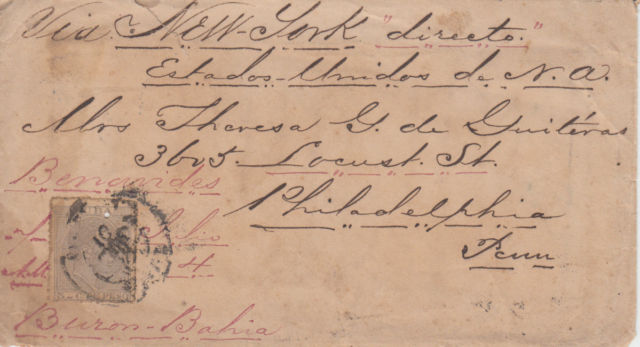 Via NEW-YORK "directo."
Estados-Unidos de N. A.
Mrs Theresa G. de Guitéras
3605. Locust. St.
Philadelphia
Penn
Benavides
Julio
4
Buron-Bahia